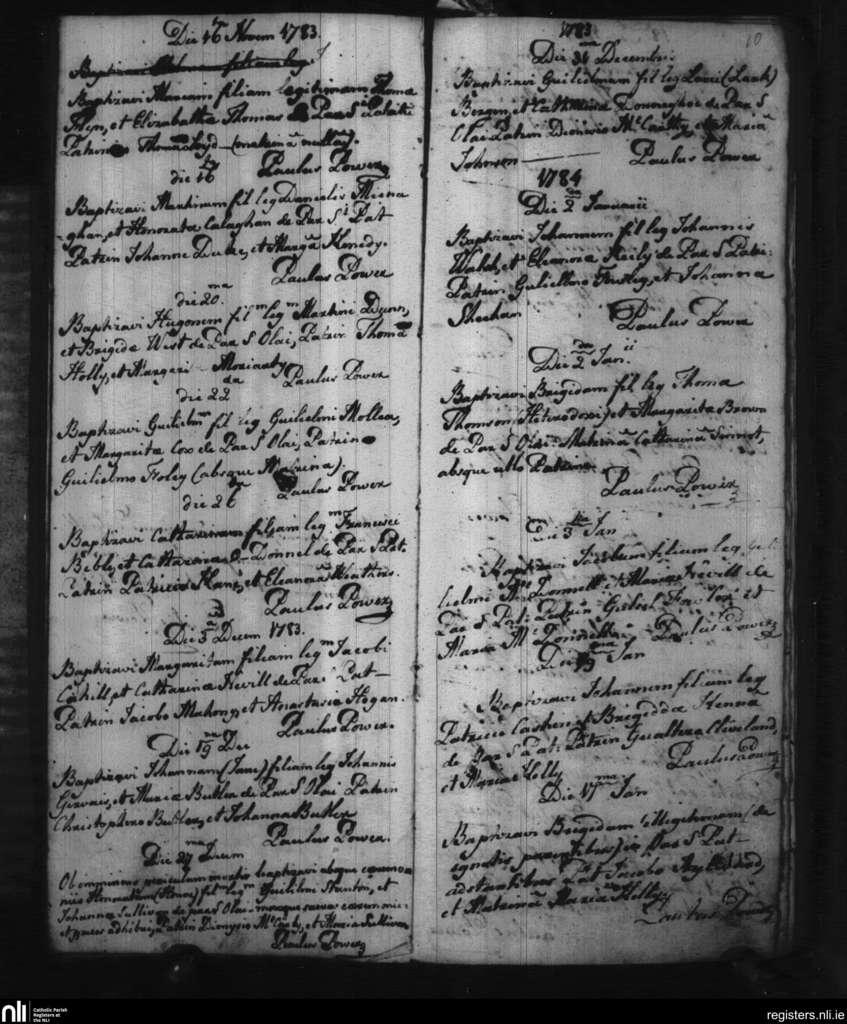 Die 16 Novem 1783.
Baptizavi filiam leg:
Baptizavi Mariam filiam legitimam Thoma
et Elizabetha Thomas de Par S Patritii
Patrino Thoma Loyd — (matrina nulla).
Paulus Power
die 16
Baptizavi Martinum fil leg Danielis
ghan, et Honorata Calaghan de Par S Pat
Patrin Johanne Duke, et Marga Kenedy.
Paulus Power
die 20.
Baptizavi Hugonem film legm Martini Dunn,
et Brigida West de Par S Olai, Patrin Thoma
Holly, et Margeri Moriaaty
Paulus Power
die 22
Baptizavi Guilielm fil leg Guilielmi Mollea,
et Margarita Cox de Par S Olai, Patrin
Guilielmo Foley (absque Matrina).
Paulus Power
die 26
Baptizavi Catharinam filiam legm Francisci
Bibby, et Catharina O-Donnel de Par S Pat.
Patrin Patricio et Eleanora Watkins.
Paulus Power
3
Die 3 Decem 1783.
Baptizavi Margaritam filiam legm Jacobi
Cahill, et Catharina Nevill de Par S Pat—
Patrin Jacobo Mahony, et Anastasia Hogan.
Paulus Power.
Die 19 De
Baptizavi Johannam (Jane) filiam leg Johannis
Gervais, et Maria Butler de Par S Olai Patrin
Christophoro Butler, et Johanna Butler
Paulus Power.
Die 27 Decem
Ob imminens periculum mortis baptizavi absque cæremo
niis Honoratam (Honor) fil legm Guilielmi Staunton, et
Johanna Sullivan de par S Olai: moxque sacras cæremonias
et preces adhibui, Patrin Dionysio Mc Carty, et Maria Sullivan
Paulus Power
1783
10
Die 31 Decembris
Baptizavi Guilielmum fil leg Lucii (Luuk)
Bergin, et Catharina Donoughoe de Par S
Olai Patrin Dionisio Mc Carthy, et Maria
Johnson —
Paulus Power
1784
Die 2 Januarii
Baptizavi Johannem fil leg Johannis
Walsh, et Eleanora Reily de Par S Patri:
Patrin Gulielmo Finsley, et Johanna
Sheehan
Paulus Power
Die 2 Jan. ii
Baptizavi Brigidam fil leg Thoma
Thomson Heterodoxi, et Margarita Brown
de Par S Olai: Matrina Catharina Sinnot,
absque ullo Patrino.
Paulus Power
Die 3 Jan
Baptizavi filiam leg Gul
ielmi Mc Donnell et Maria Nevill de
Par S Pat: Patrin Gabriel et
Maria Mc Donnell
Paulus Power
Die 13 Jan
Baptizavi Johannem filium leg
Patricii Cashen, et Brigidda Kenna
de Par S Pat: Patrin Gualtero Cleveland,
et Maria Kelly
Paulus Power
Die 17 Jan
Baptizavi Brigidam illegitimam (de
ignotis parentibus) in Par S Pat
adstantibus Pat Jacobo Aylward,
et Matrina Maria Kelly,
Paulus Power
nli
Catholic Parish
Registers at
the NLI
registers.nli.ie